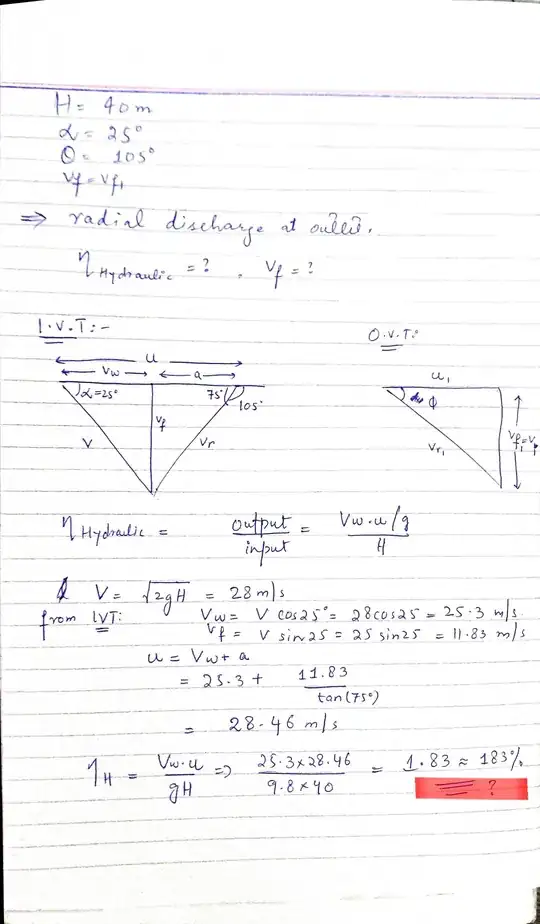 H = 40m
α = 25°
θ = 105°
Vf = Vf₁
⇒ radial discharge at outlet.
η Hydraulic = ? , Vf = ?
I.V.T:-
O.V.T:
u
Vw a
α=25° 75° 105°
V Vf Vr
u₁
ϕ
Vr₁
η Hydraulic = output/input = (Vw.u/g)/H
V = √2gH = 28 m/s
from IVT: Vw = V cos25° = 28cos25 = 25.3 m/s.
Vf = V sin25 = 25 sin25 = 11.83 m/s
u = Vw + a
= 25.3 + 11.83/tan(75°)
= 28.46 m/s
ηH = Vw.u/gH ⇒ 25.3×28.46/9.8×40 = 1.83 ≈ 183%
?